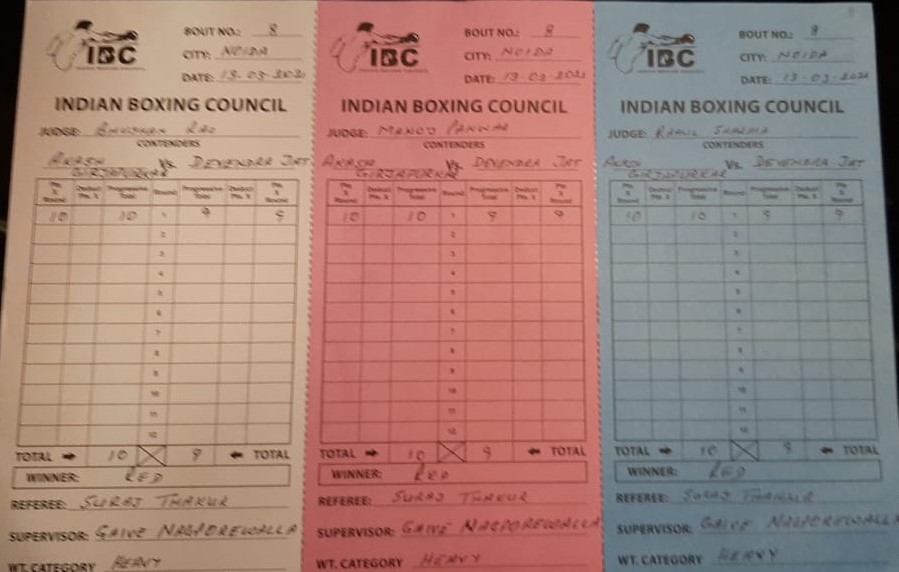 IBC
BOUT NO.: 8
CITY: NOIDA
DATE: 13-03-2021
INDIAN BOXING COUNCIL
JUDGE: BHUSHAN RAO
CONTENDERS
AKASH GIRJAPURKAR Vs. DEVENDRA JAT
Pts X Round Deduct Pts. X Progressive Total Round Progressive Total Deduct Pts. X Pts X Round
10 10 1 9 9
2
3
4
5
6
7
8
9
10
11
12
TOTAL 10 9 TOTAL
WINNER: RED
REFEREE: SURAJ THAKUR
SUPERVISOR: GAIVE NAGPOREWALLA
WT. CATEGORY HEAVY
IBC
BOUT NO.: 8
CITY: NOIDA
DATE: 13-03-2021
INDIAN BOXING COUNCIL
JUDGE: MANOJ PANWAR
CONTENDERS
AKASH GIRJAPURKAR Vs. DEVENDRA JAT
Pts X Round Deduct Pts. X Progressive Total Round Progressive Total Deduct Pts. X Pts X Round
10 10 1 9 9
2
3
4
5
6
7
8
9
10
11
12
TOTAL 10 9 TOTAL
WINNER: RED
REFEREE: SURAJ THAKUR
SUPERVISOR: GAIVE NAGPOREWALLA
WT. CATEGORY HEAVY
IBC
BOUT NO.: 8
CITY: NOIDA
DATE: 13-03-2021
INDIAN BOXING COUNCIL
JUDGE: RAHUL SHARMA
CONTENDERS
GIRJAPURKAR Vs. DEVENDRA JAT
Pts X Round Deduct Pts. X Progressive Total Round Progressive Total Deduct Pts. X Pts X Round
10 10 1 9 9
2
3
4
5
6
7
8
9
10
11
12
TOTAL 10 9 TOTAL
WINNER: RED
REFEREE: SURAJ THAKUR
SUPERVISOR: GAIVE NAGPOREWALLA
WT. CATEGORY HEAVY